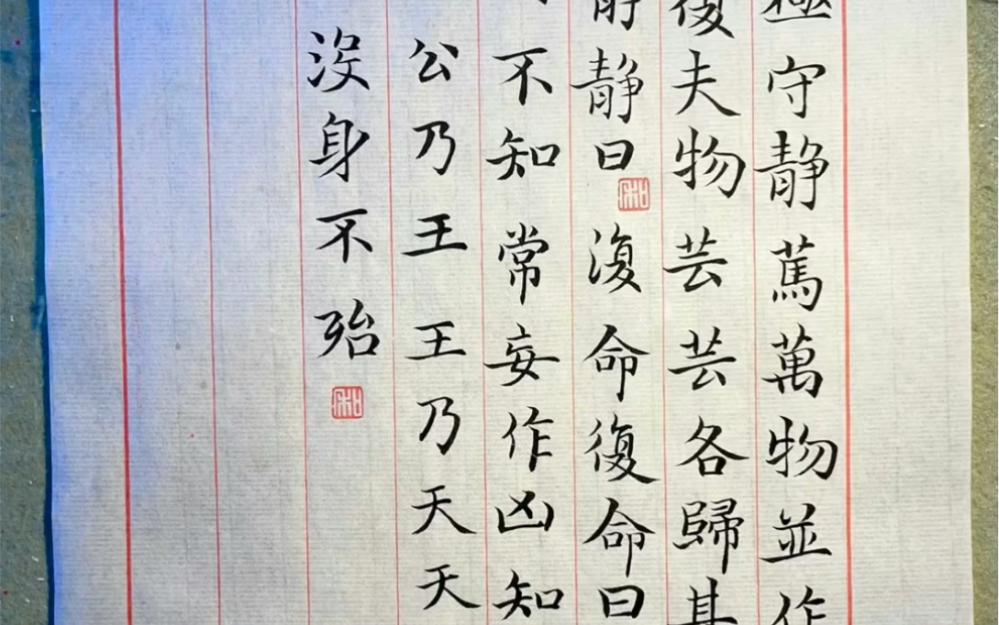 極守静篤萬物並作
復夫物芸芸各歸其
静静曰復命復命曰
不知常妄作凶知
公乃王王乃天天
沒身不殆